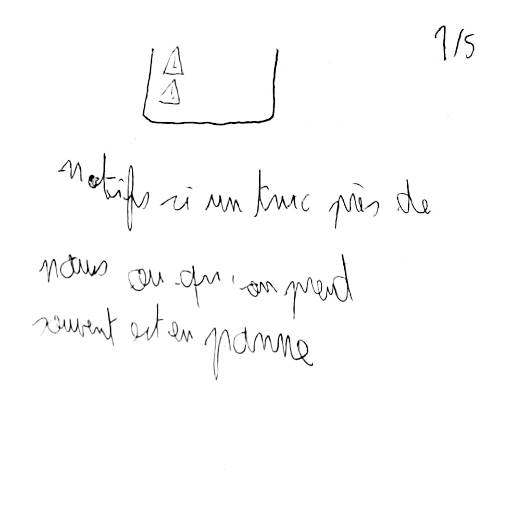 1/5
notifs si un truc près de
nous ou qu'on prend
souvent est en panne